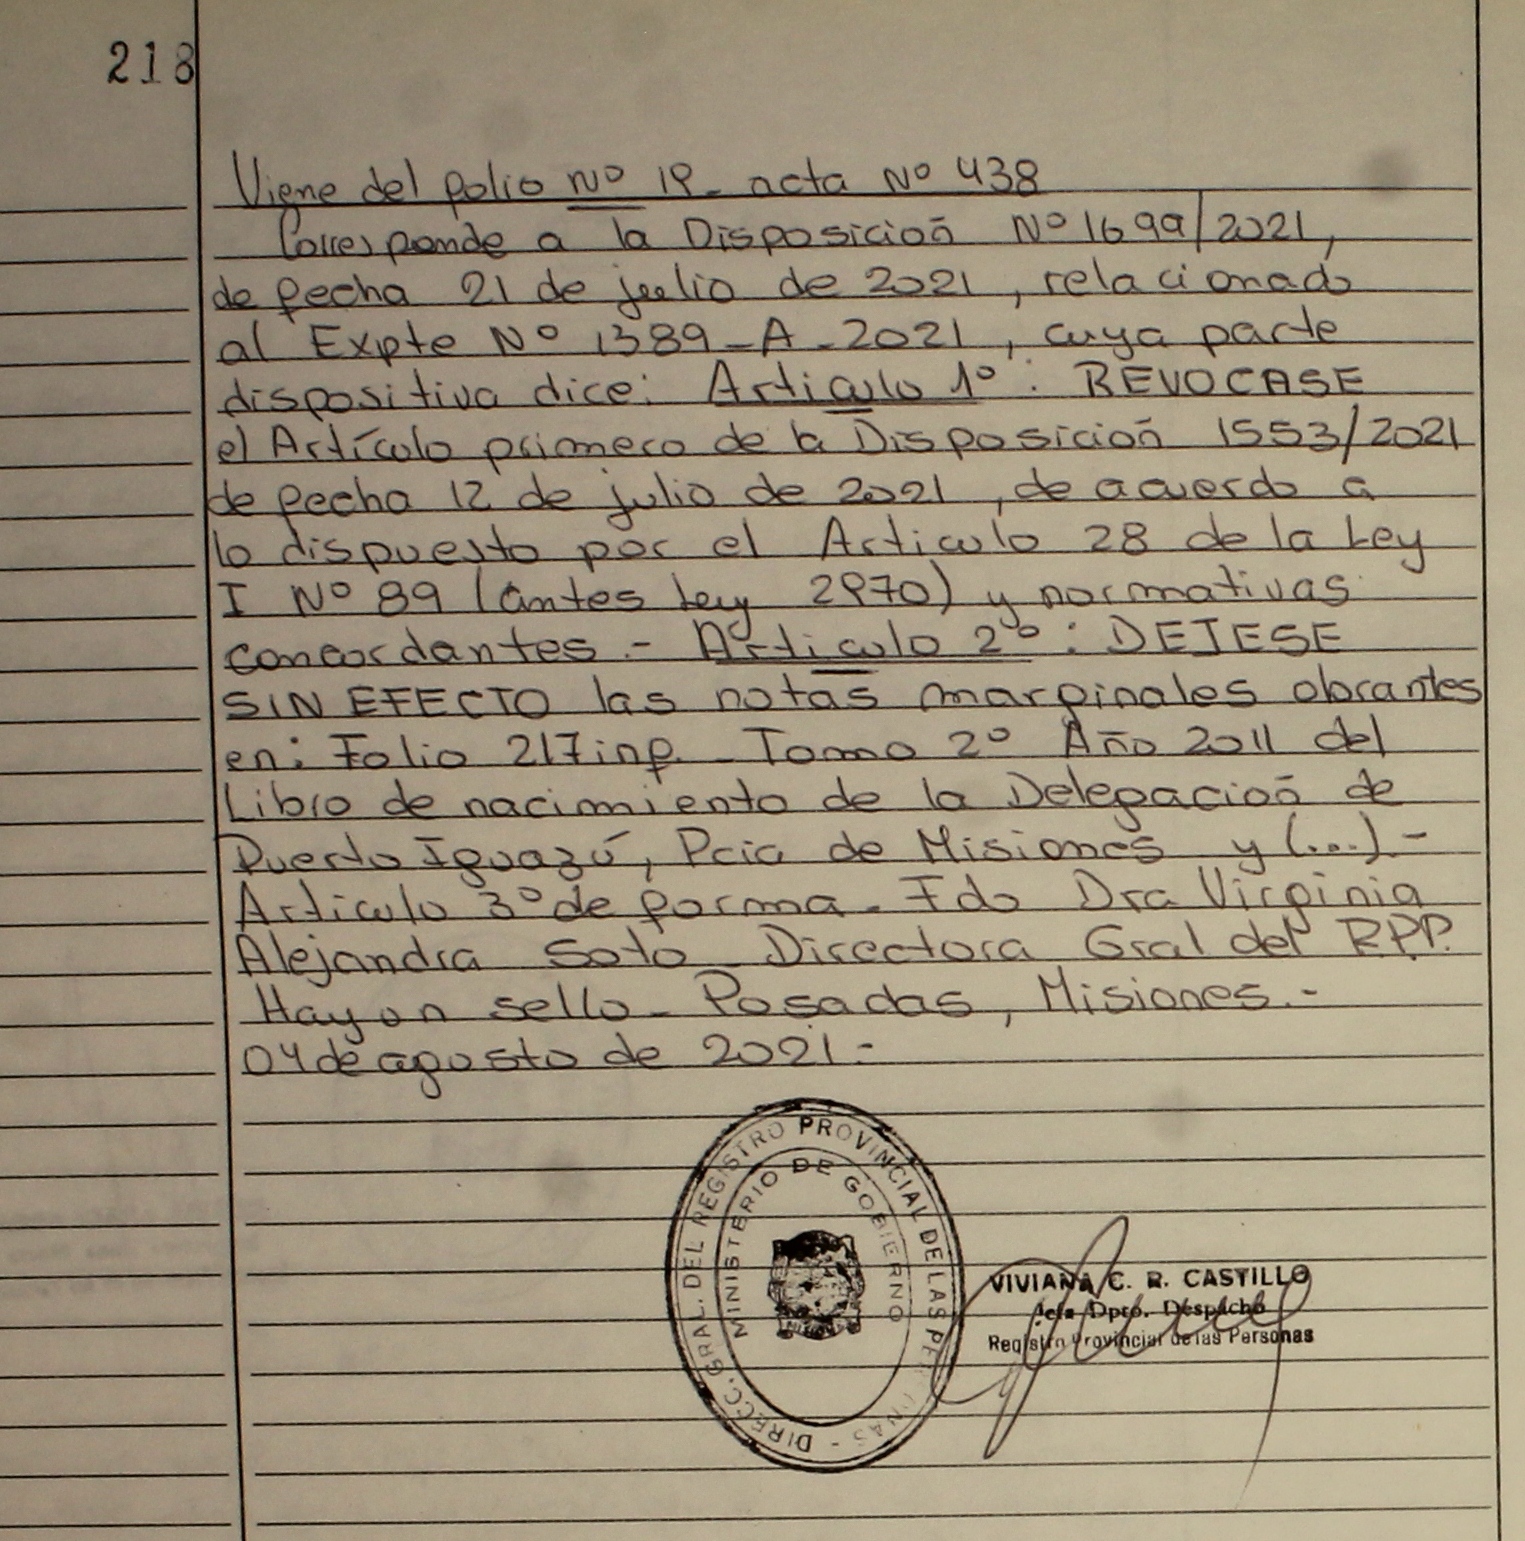 218
Viene del folio Nº 19- acta Nº 438
Corresponde a la Disposición Nº 1699/2021,
de fecha 21 de julio de 2021, relacionado
al Expte Nº 1389-A-2021, cuya parte
dispositiva dice: Articulo 1º: REVOCASE
el Artículo primero de la Disposición 1553/2021
de fecha 12 de julio de 2021, de acuerdo a
lo dispuesto por el Articulo 28 de la Ley
I Nº 89 (antes Ley 2970) y normativas
concordantes.- Articulo 2º: DEJESE
SIN EFECTO las notas marginales obrantes
en: Folio 217inf. Tomo 2º Año 2011 del
Libro de nacimiento de la Delegación de
Puerto Iguazú, Pcia de Misiones y (...)-
Articulo 3º de forma. Fdo Dra Virginia
Alejandra Soto Directora Gral del RPP.
Hay un sello- Posadas, Misiones.-
04 de agosto de 2021.-
DIRECC. GRAL. DEL REGISTRO PROVINCIAL DE LAS PERSONAS -
MINISTERIO DE GOBIERNO
VIVIANA C. R. CASTILLO
Jefa Dpto. Despacho
Registro Provincial de las Personas